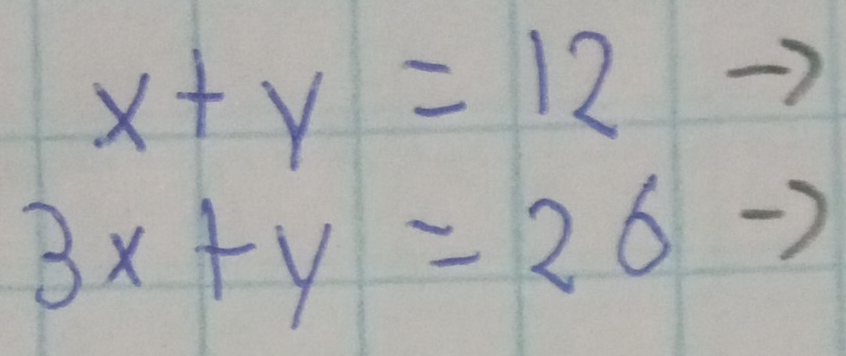 x + y = 12 →
3x + y = 26 →